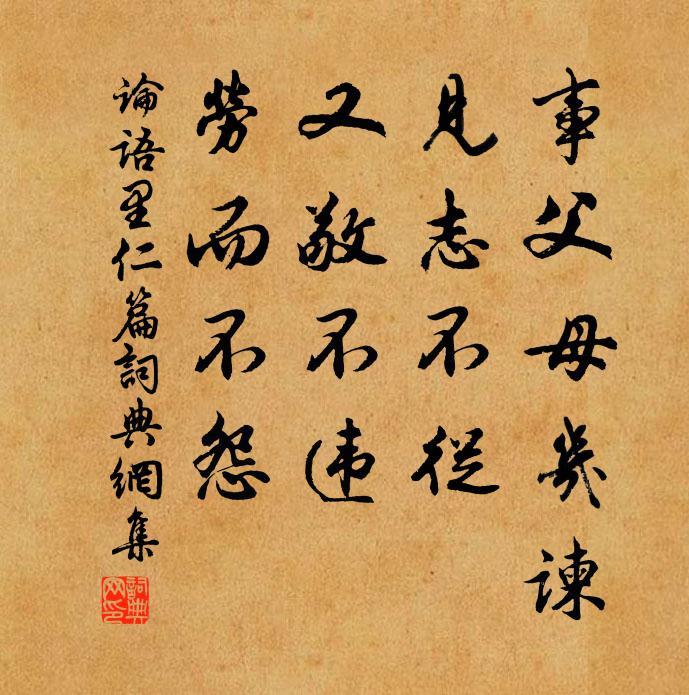 事父母幾諫
見志不從
又敬不違
勞而不怨
論語里仁篇詞典網集
詞典網印